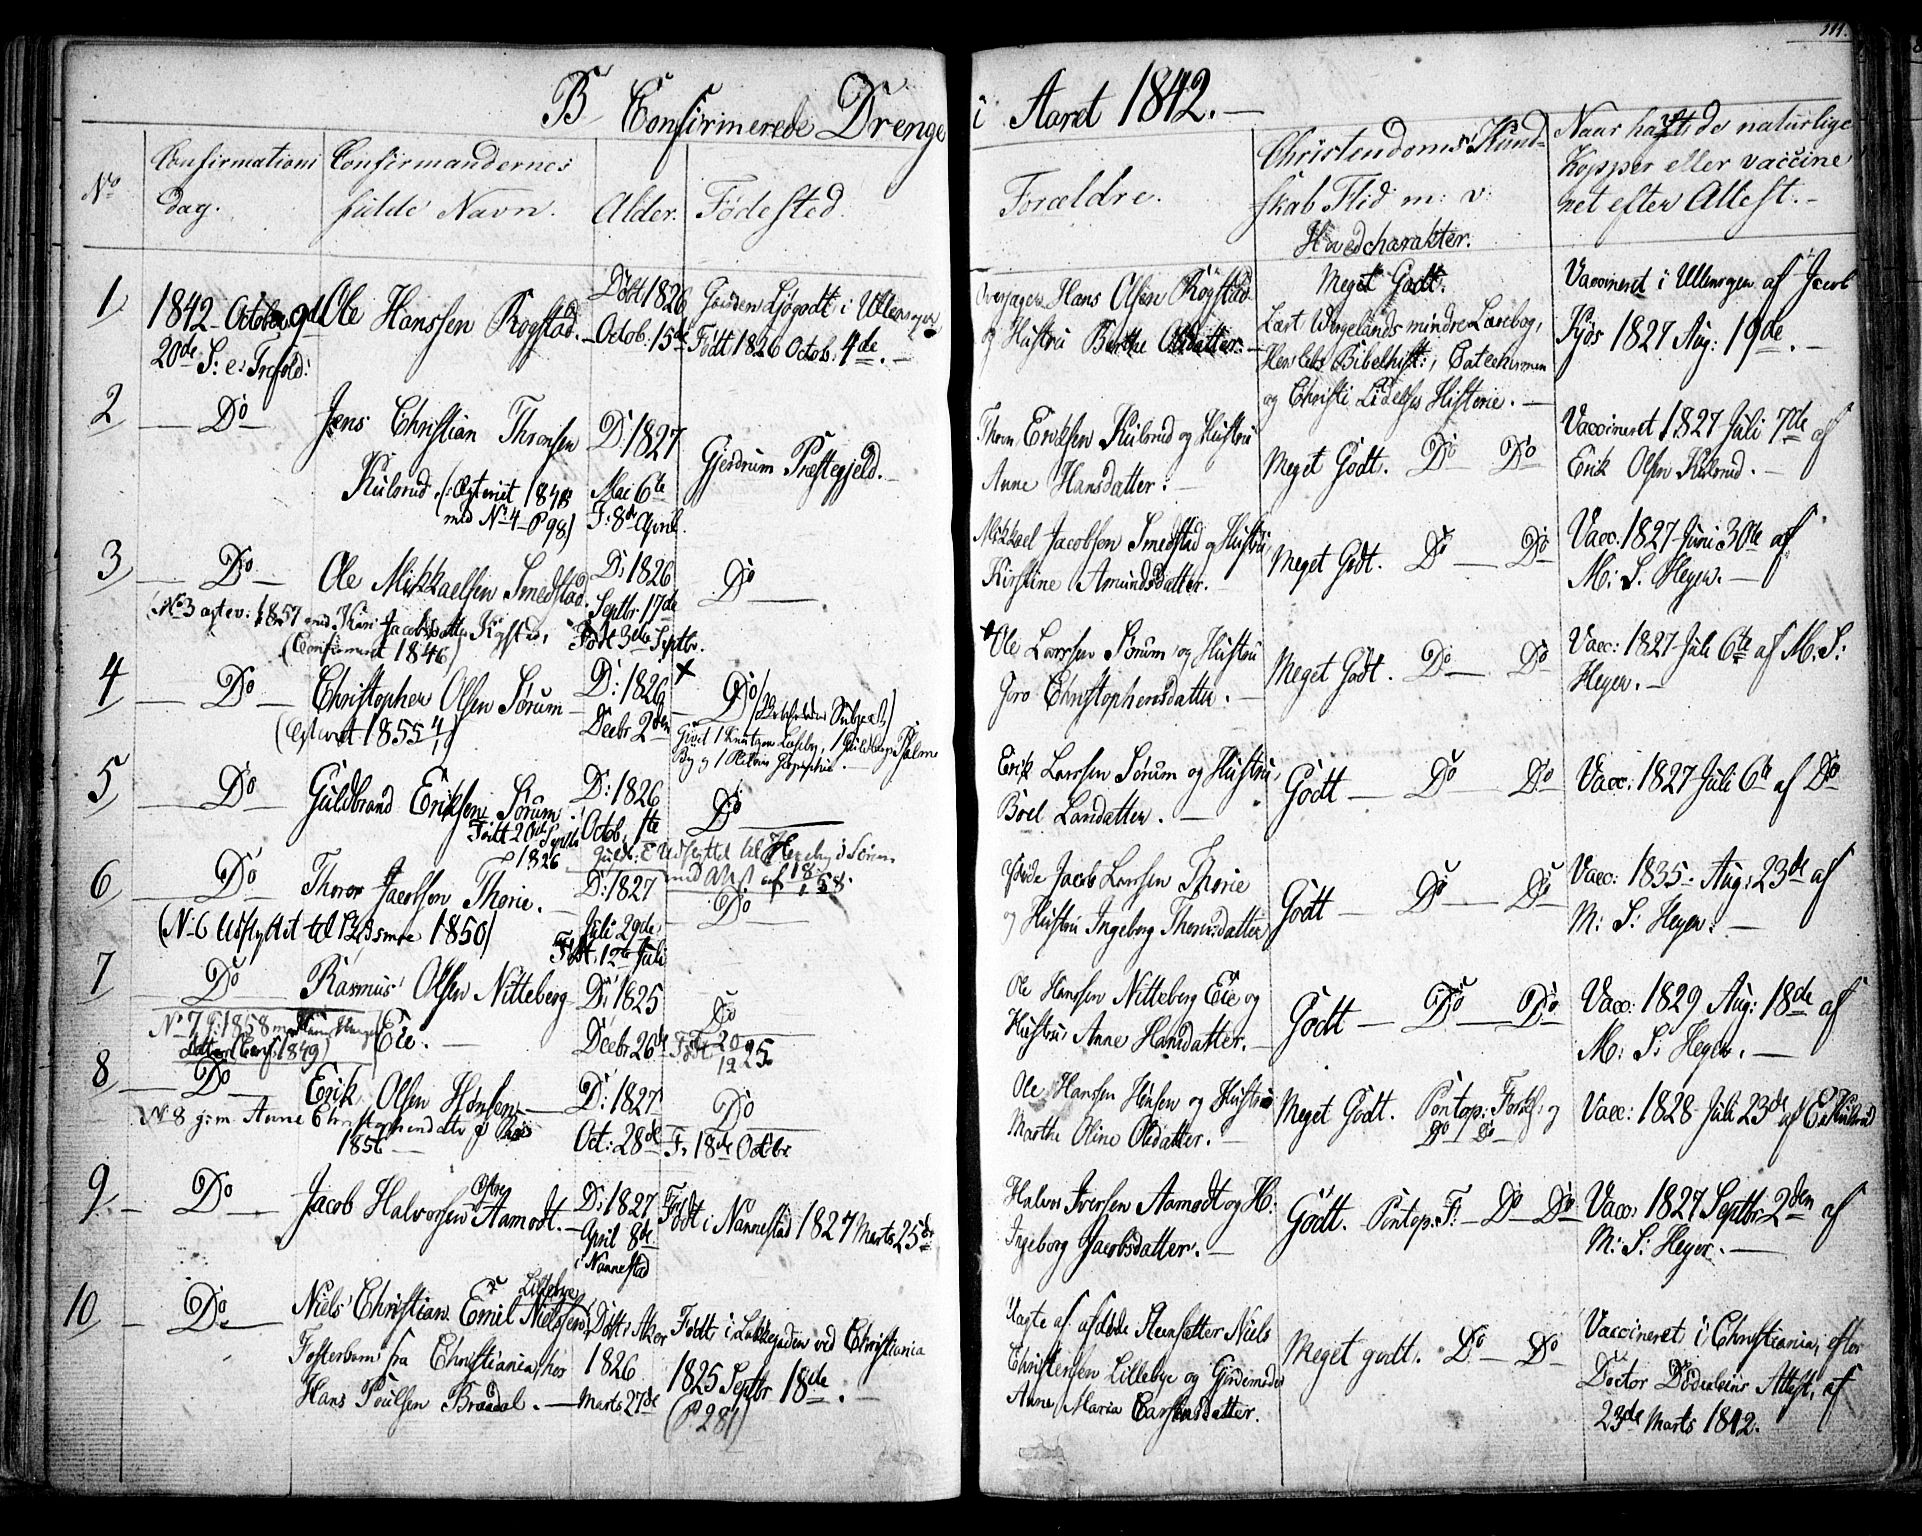 111.
B Confirmerede Drenge i Aaret 1842.
No
Confirmations dag.
Confirmandernes fulde Navn.
Alder.
Fødested.
Forældre.
Christendoms Kundskab Flid m: v:
Hovedcharakter.
Naar havt de naturlige
Kopper eller vaccine
ret efter Attest.
1
1842 October 9de
20de S: e: Trefold:
Ole Hanssen Rogstad.
Døbt 1826
Octob: 15de
Gaarden Ljøgodt i Ullensager
Født 1826 Octob: 4de.
Hans Olsen Rogstad
og Hustru Berthe Olsdatter.
Meget Godt.
Lært Wergelands mindre Lærebog,
Herslebs Bibelhist:, Catechismen
og Christi Lidelses Historie.
Vaccineret i Ullensager af Jacob
1827 Aug: 19de.
2
Do
Jens Christian Thronsen
Kulsrud
med No 4 P 98)
D: 1827
Mai 6te
F: 8de April.
Gjerdrum Præstegjeld.
Thron Eriksen Kulsrud og Hustru
Anne Hansdatter.
Meget Godt. Do Do
Vaccineret 1827 Juli 7de af
Erik Olsen Kulsrud.
3
Do
Ole Mikkaelsen Smedstad.
(No 3 egtev: 1857 med Kari Jacobsdatter
(Confirmeret 1846)
D: 1826
Septbr. 17de
Født 3de Septbr.
Do
Mikkael Jacobsen Smedstad og Hustru
Kirstine Amundsdatter.
Meget Godt. Do Do
Vacc. 1827 Juni 30te af
M: S: Heyer.
4
Do
Christopher Olsen Sørum
D: 1826
Decbr 2den
Do
Ole Larssen Sørum og Hustru
Goro Christophersdatter.
Meget Godt. Do Do
Vacc: 1827 Juli 6te af M: S:
Heyer.
5
Do
Guldbrand Eriksen Sørum
Født 20de Septb
1826
D: 1826
Octob. 1te
Do
Erik Larssen Sørum og Hustru
Boel Larsdatter.
Godt Do Do
Vacc: 1827 Juli 6te af Do
6
Do
Thoror Jacobsen Thorie.
(No 6 Udflyttet til 1850)
D: 1827
Juli 29de
Født 12te Juli
Do
Jacob Larssen Thorie
og Hustru Ingeborg
Godt Do Do
Vacc: 1835 Aug: 23de af
M: S: Heyer.
7
Do
Rasmus Olsen Nitteberg
Eie.
No 7 g: 1858
1849)
D: 1825
Decbr 26de
Do
Ole Hanssen Nitteberg Eie og
Hustru Anne Hansdatter.
Godt Do Do
Vacc: 1829 Aug: 18de af
M: S: Heyer.
8
Do
Erik Olsen Hønsen
No 8 g: m. Anne Christophersdatter
1856
D: 1827
Oct: 28de
Do
F: 18de Octbr
Ole Hanssen Hønsen og Hustru
Marthe Oline Olsdatter.
Meget Godt. Pontop: Forkl: og
Do Do
Vacc: 1828 Juli 23de af E: Kulsrud
9.
Do
Jacob Halvorsen Aamodt.
D: 1827
April 8de
i Nannestad
Født i Nannestad 1827 Marts 25de
Halvor Iversen Aamodt og H:
Ingeborg Jacobsdatter.
Godt. Pontop: F: Do Do
Vacc: 1827 Septbr 2den af
M: S: Heyer.
10
Do
Lillebye
Niels Christian Emil Nielssen,
Fosterbarn fra Christiania, hos
Hans Poulsen Braadal.
Døbt i Aker
1826
Marts 27de
Født i ved Christiania
1825 Septbr 18de.
(P. 281)
Uægte af afdøde Niels
Christensen Lillebye og
Anne Maria Carstensdatter.
Meget godt. Do Do
Vaccineret i Christiania, efter
Doctor Attest, af
23de Marts 1842.